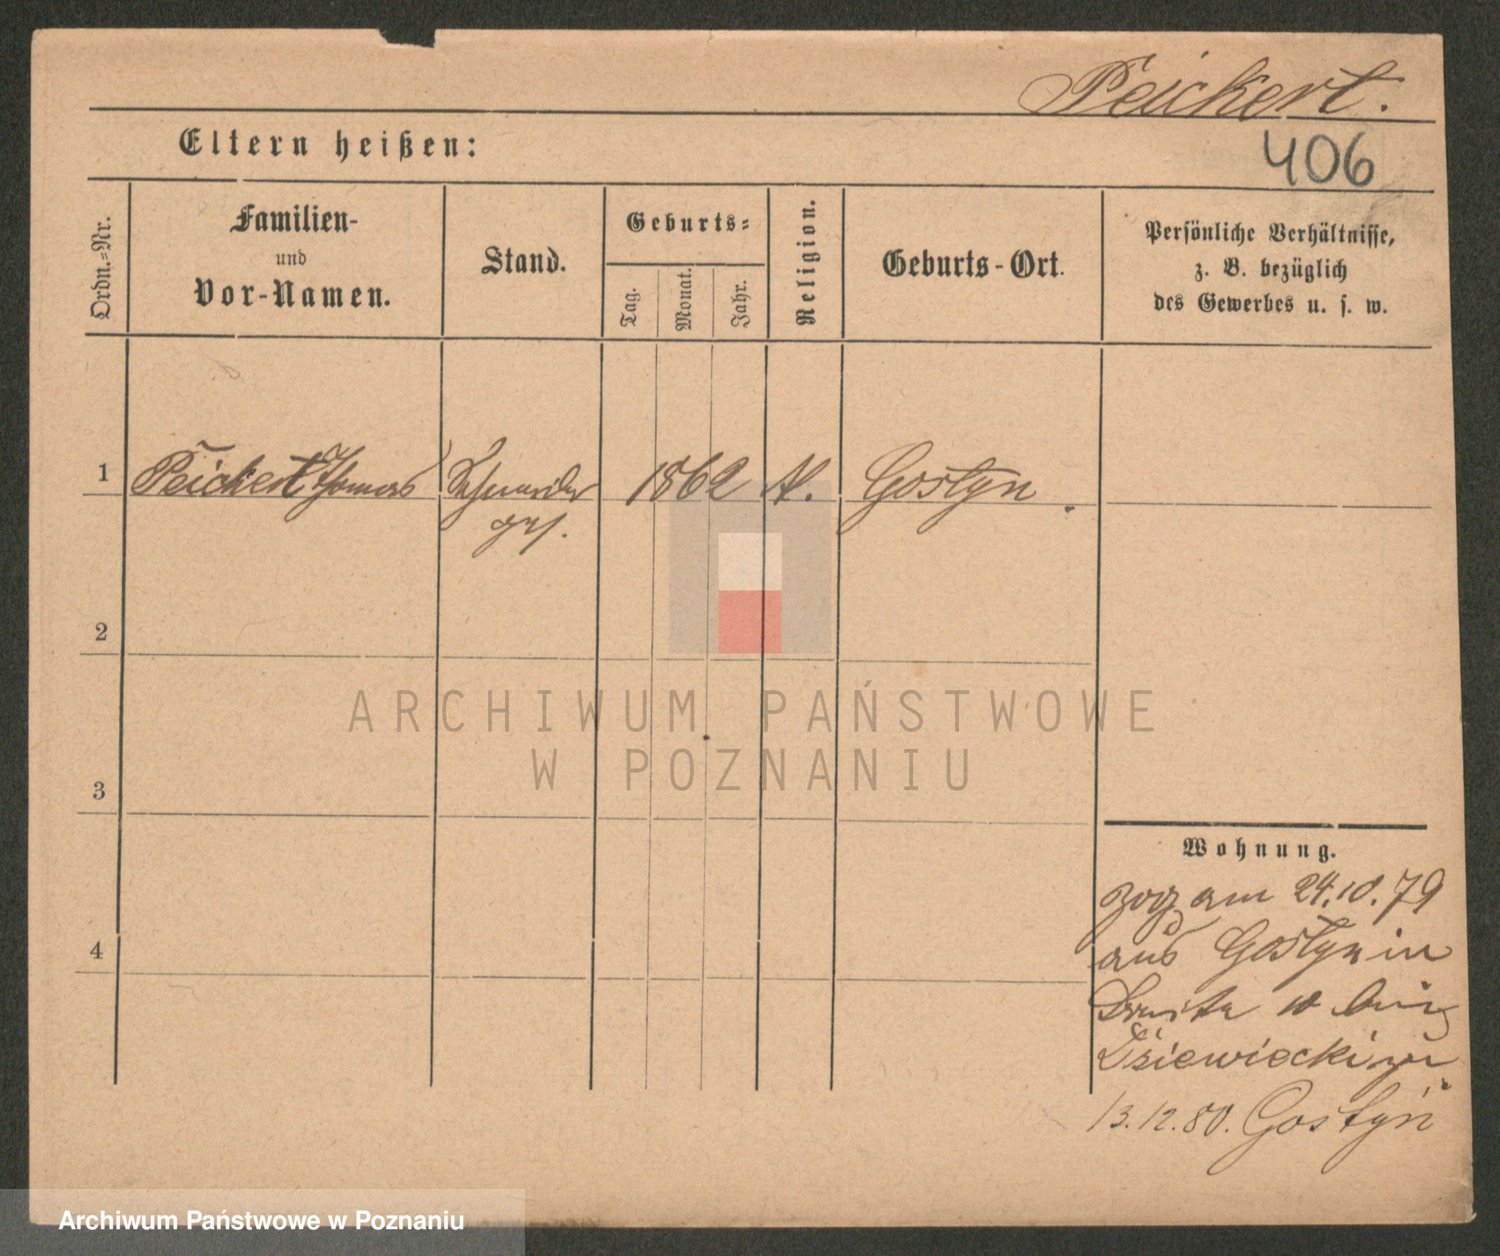 Peickert.
406
Eltern heißen:
Ordn.-Nr.
Familien-
und
Vor-Namen.
Stand.
Geburts-
Tag.
Monat.
Jahr.
Religion.
Geburts-Ort.
Persönliche Verhältnisse,
z. B. bezüglich
des Gewerbes u. s. w.
1 Peickert Thomas Schneider 1862 K. Gostyn
ges.
2
ARCHIWUM PAŃSTWOWE
W POZNANIU
3
Wohnung.
zog am 24.10.79
aus Gostyn in
4
Breite 10 bei
13.12.80. Gostyń
Archiwum Państwowe w Poznaniu